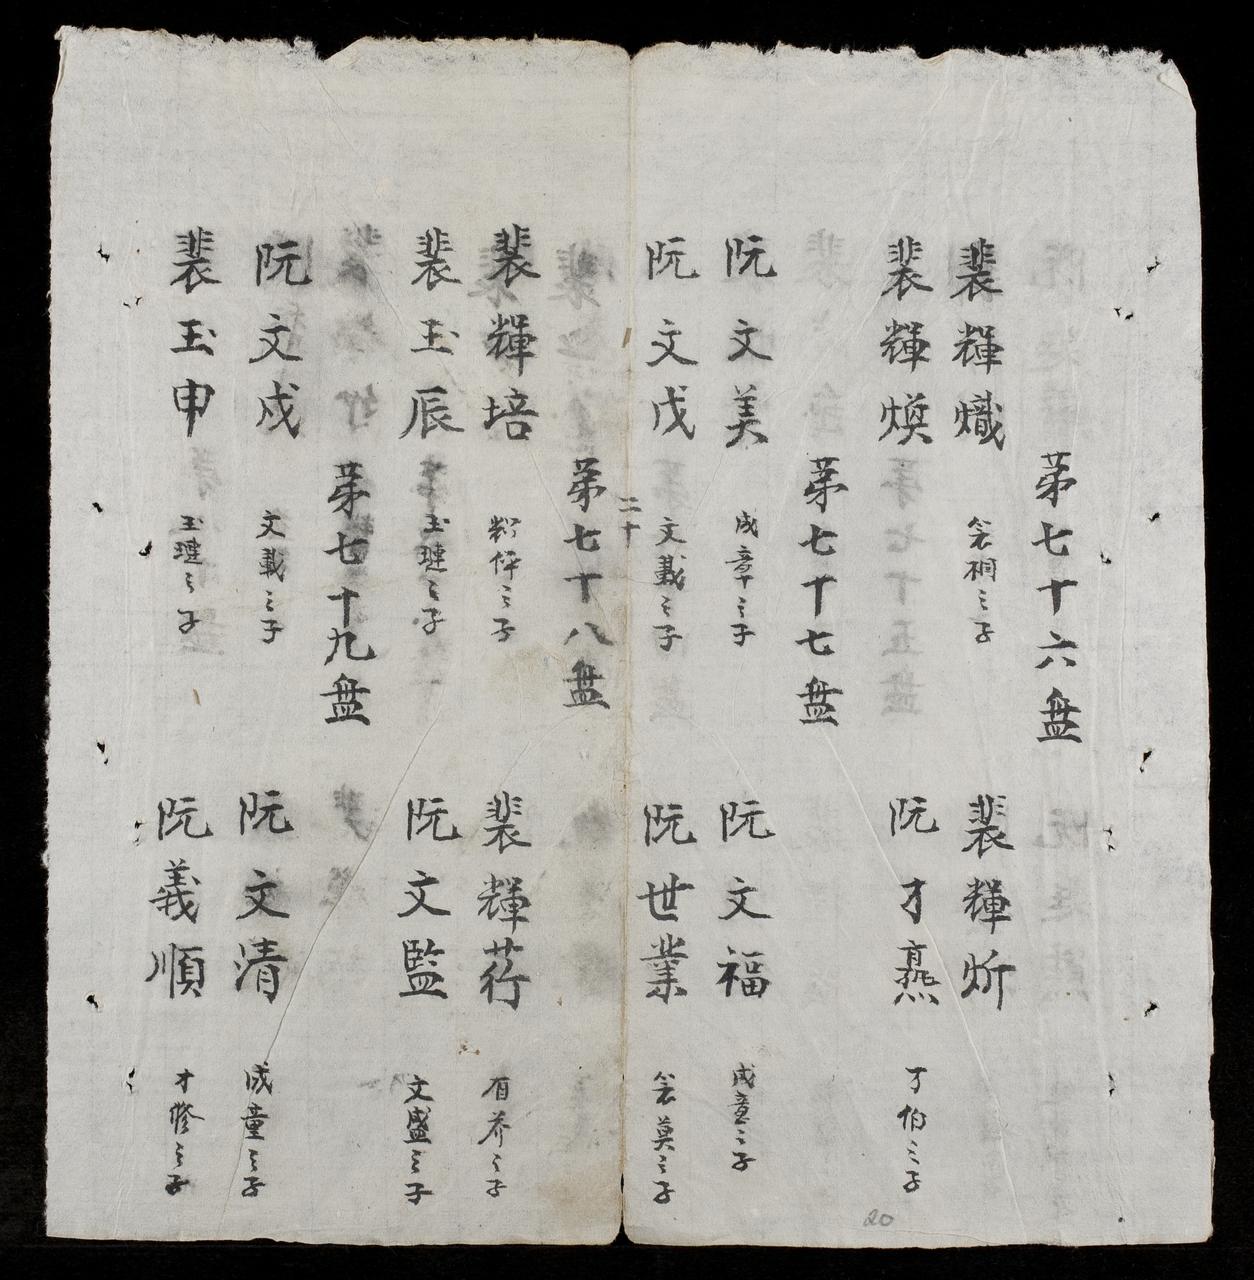 第七十六盤
裴輝熾 衾桐之子
裴輝炘
裴輝煥
阮才燾 才伯之子
第七十七盤
阮文美 成章之子
阮文福 成章之子
阮文戊 文載之子
阮世業 衾莫之子
二十
第七十八盤
裴輝培
裴輝荇 有养之子
裴玉辰 玉璉之子
阮文監 文盛之子
第七十九盤
阮文成 文載之子
阮文清 成童之子
裴玉申 玉璉之子
阮義順 才修之子
20